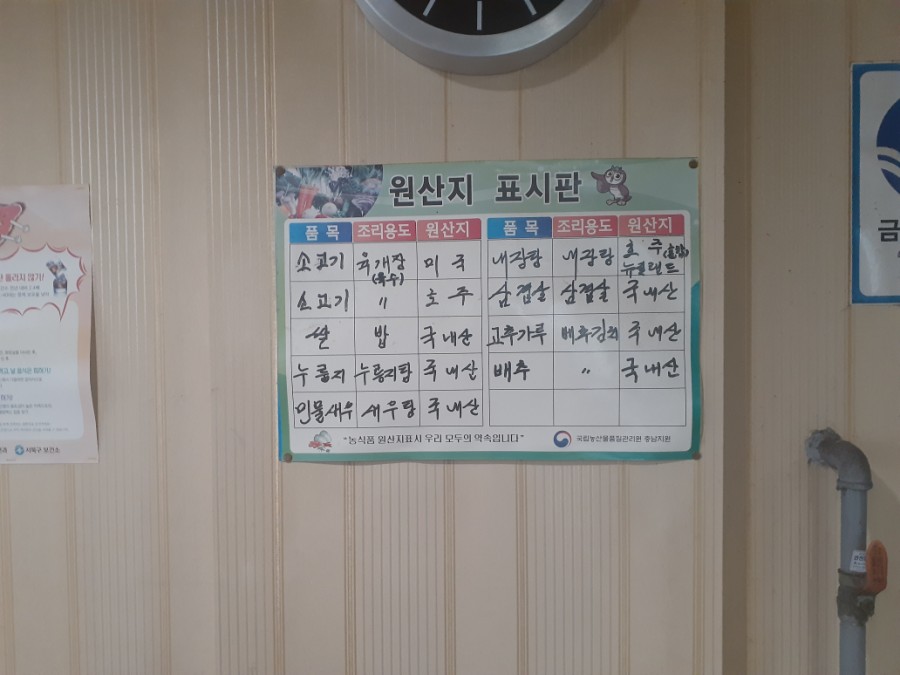 원산지 표시판
품목 조리용도 원산지
소고기 육개장(육수) 미국
소고기 〃 호주
쌀 밥 국내산
누룽지 누룽지탕 국내산
민물새우 새우탕 국내산
품목 조리용도 원산지
내장탕 내장탕 호주(혼합) 뉴질랜드
삼겹살 삼겹살 국내산
고추가루 배추김치 국내산
배추 〃 국내산
"농식품 원산지표시 우리 모두의 약속입니다"
국립농산물품질관리원 충남지원
서북구 보건소
금